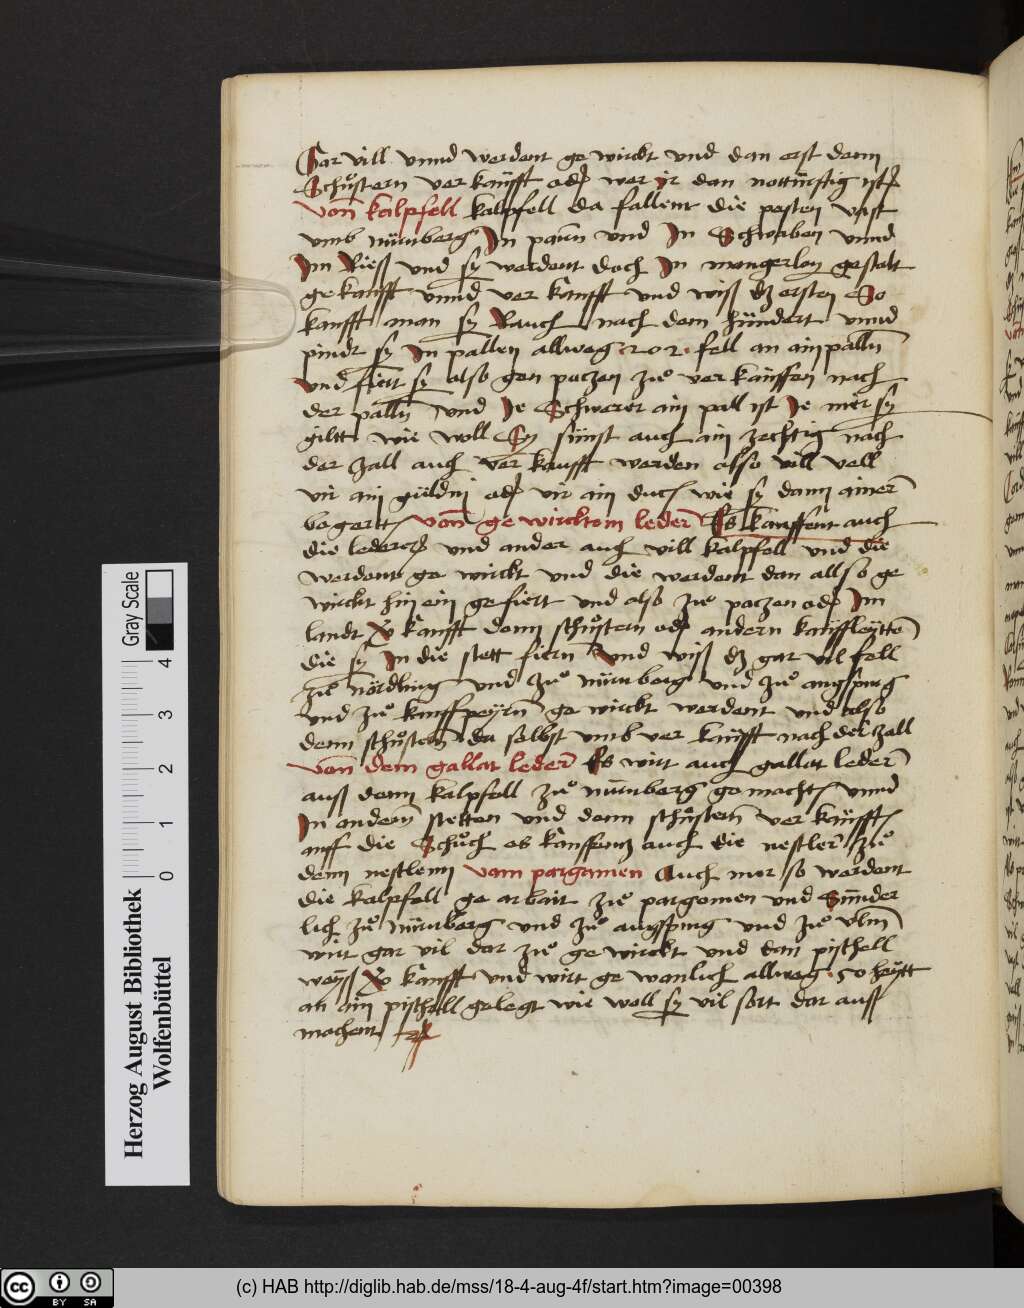 Gar vill vnnd werdent gewirckt vnd dan erst denn
Schůstern verkaufft oder wer ir dan notturftig ist
Von kalpfell kalpfell da fallent die pesten vast
vmb nürnberg In pairn vnd In Schwaben vnnd
Im Riess vnd sy werdent doch In mengerlay gestalt
gekaufft vnnd verkaufft vnd wiss dz ersten So
kaufft man sy Rauch nach dem hündert vnnd
pindt sy In pallen allweg 202 fell an ain palln
vnd fiert sy also gen poczen zuͦ verkauffen nach
der palln vnd Je Schwerer ain pall ist Je mer sy
giltt wie woll Sy sünst auch ain zechtig nach
der zall auch verkaufft werden also vill vell
vir ain guldni oder vir ain duc wie sy dann ainer
begertt Von gewircktem leder Es kauffent auch
die lederer vnd ander auch vill kalpfell vnd die
werdent gewirckt vnd die werdent dan allso ge
wirckt hinein gefiert vnd also zuͦ poczen oder Im
landt verkaufft denn schůstern oder andern kauffleytten
die sy In die stett fiern Vnd wiss dz gar vil fell
zuͦ nördling vnd zuͦ nürnberg vnd zuͦ augspurg
vnd zuͦ kauffpeyrn gewirckt werdent vnd also
denn schůstern da selbst vmb verkaufft nach der zall
Von dem gallat leder Es wirt auch gallat leder
auss denn kalpfell zuͦ nurnberg gemacht vnnd
In andern stetten vnd denn schůstern verkaufft
auff die Schůch es kauffentz auch die nestler zuͦ
denn nestlenn Vom pargamen Auch mer so werdent
die kalpfell gearbait zuͦ pargomen vnd Sünder
lich zuͦ nürnberg vnd zuͦ augspurg vnd zuͦ vlm
wirt gar vil dar zuͦ gewirckt vnd dan pischell
weyss verkaufft vnd wirt gewonlich allweg 50 heytt
an ain pischell gelegt wie woll sy vil sort dar auss
machent
Herzog August Bibliothek
Wolfenbüttel
Gray Scale
0 1 2 3 4
cc BY SA
(c) HAB http://diglib.hab.de/mss/18-4-aug-4f/start.htm?image=00398